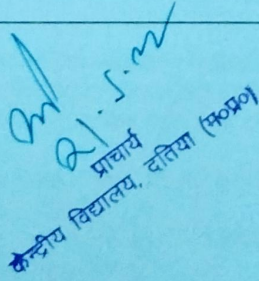 प्राचार्य
केन्द्रीय विद्यालय, दतिया (म०प्र०)